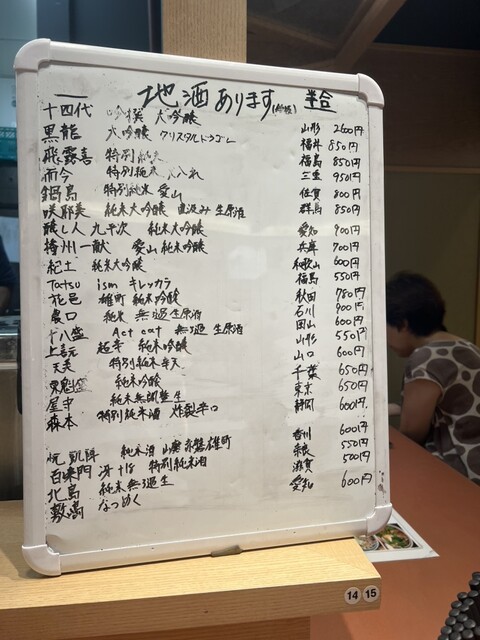 地酒あります(冷酒) 半合
十四代 吟撰 大吟醸 山形 2600円
黒龍 大吟醸 クリスタルドラゴン 福井 850円
飛露喜 特別純米 福島 850円
而今 特別純米 火入れ 三重 950円
鍋島 特別純米 愛山 佐賀 800円
咲耶美 純米大吟醸 直汲み生原酒 群馬 850円
醸し人九平次 純米大吟醸 愛知 900円
播州一献 愛山純米吟醸 兵庫 700円
紀土 純米大吟醸 和歌山 600円
Tatsu ism キレッカラ 福島 550円
花邑 雄町 純米吟醸 秋田 780円
農口 純米 無ろ過生原酒 石川 900円
十八盛 Act cat 無ろ過生原酒 岡山 600円
上喜元 超辛 純米吟醸 山形 550円
天美 特別純米 山口 600円
東魁盛 純米吟醸 千葉 650円
屋守 純米無調整生 東京 650円
森本 特別純米酒 炸裂辛口 静岡 600円
悦凱陣 純米酒 山廃赤磐雄町 香川 600円
百楽門 冴 特別純米酒 奈良 550円
北島 純米無ろ過生 滋賀 500円
敷嶋 なつめく 愛知 600円
14 15